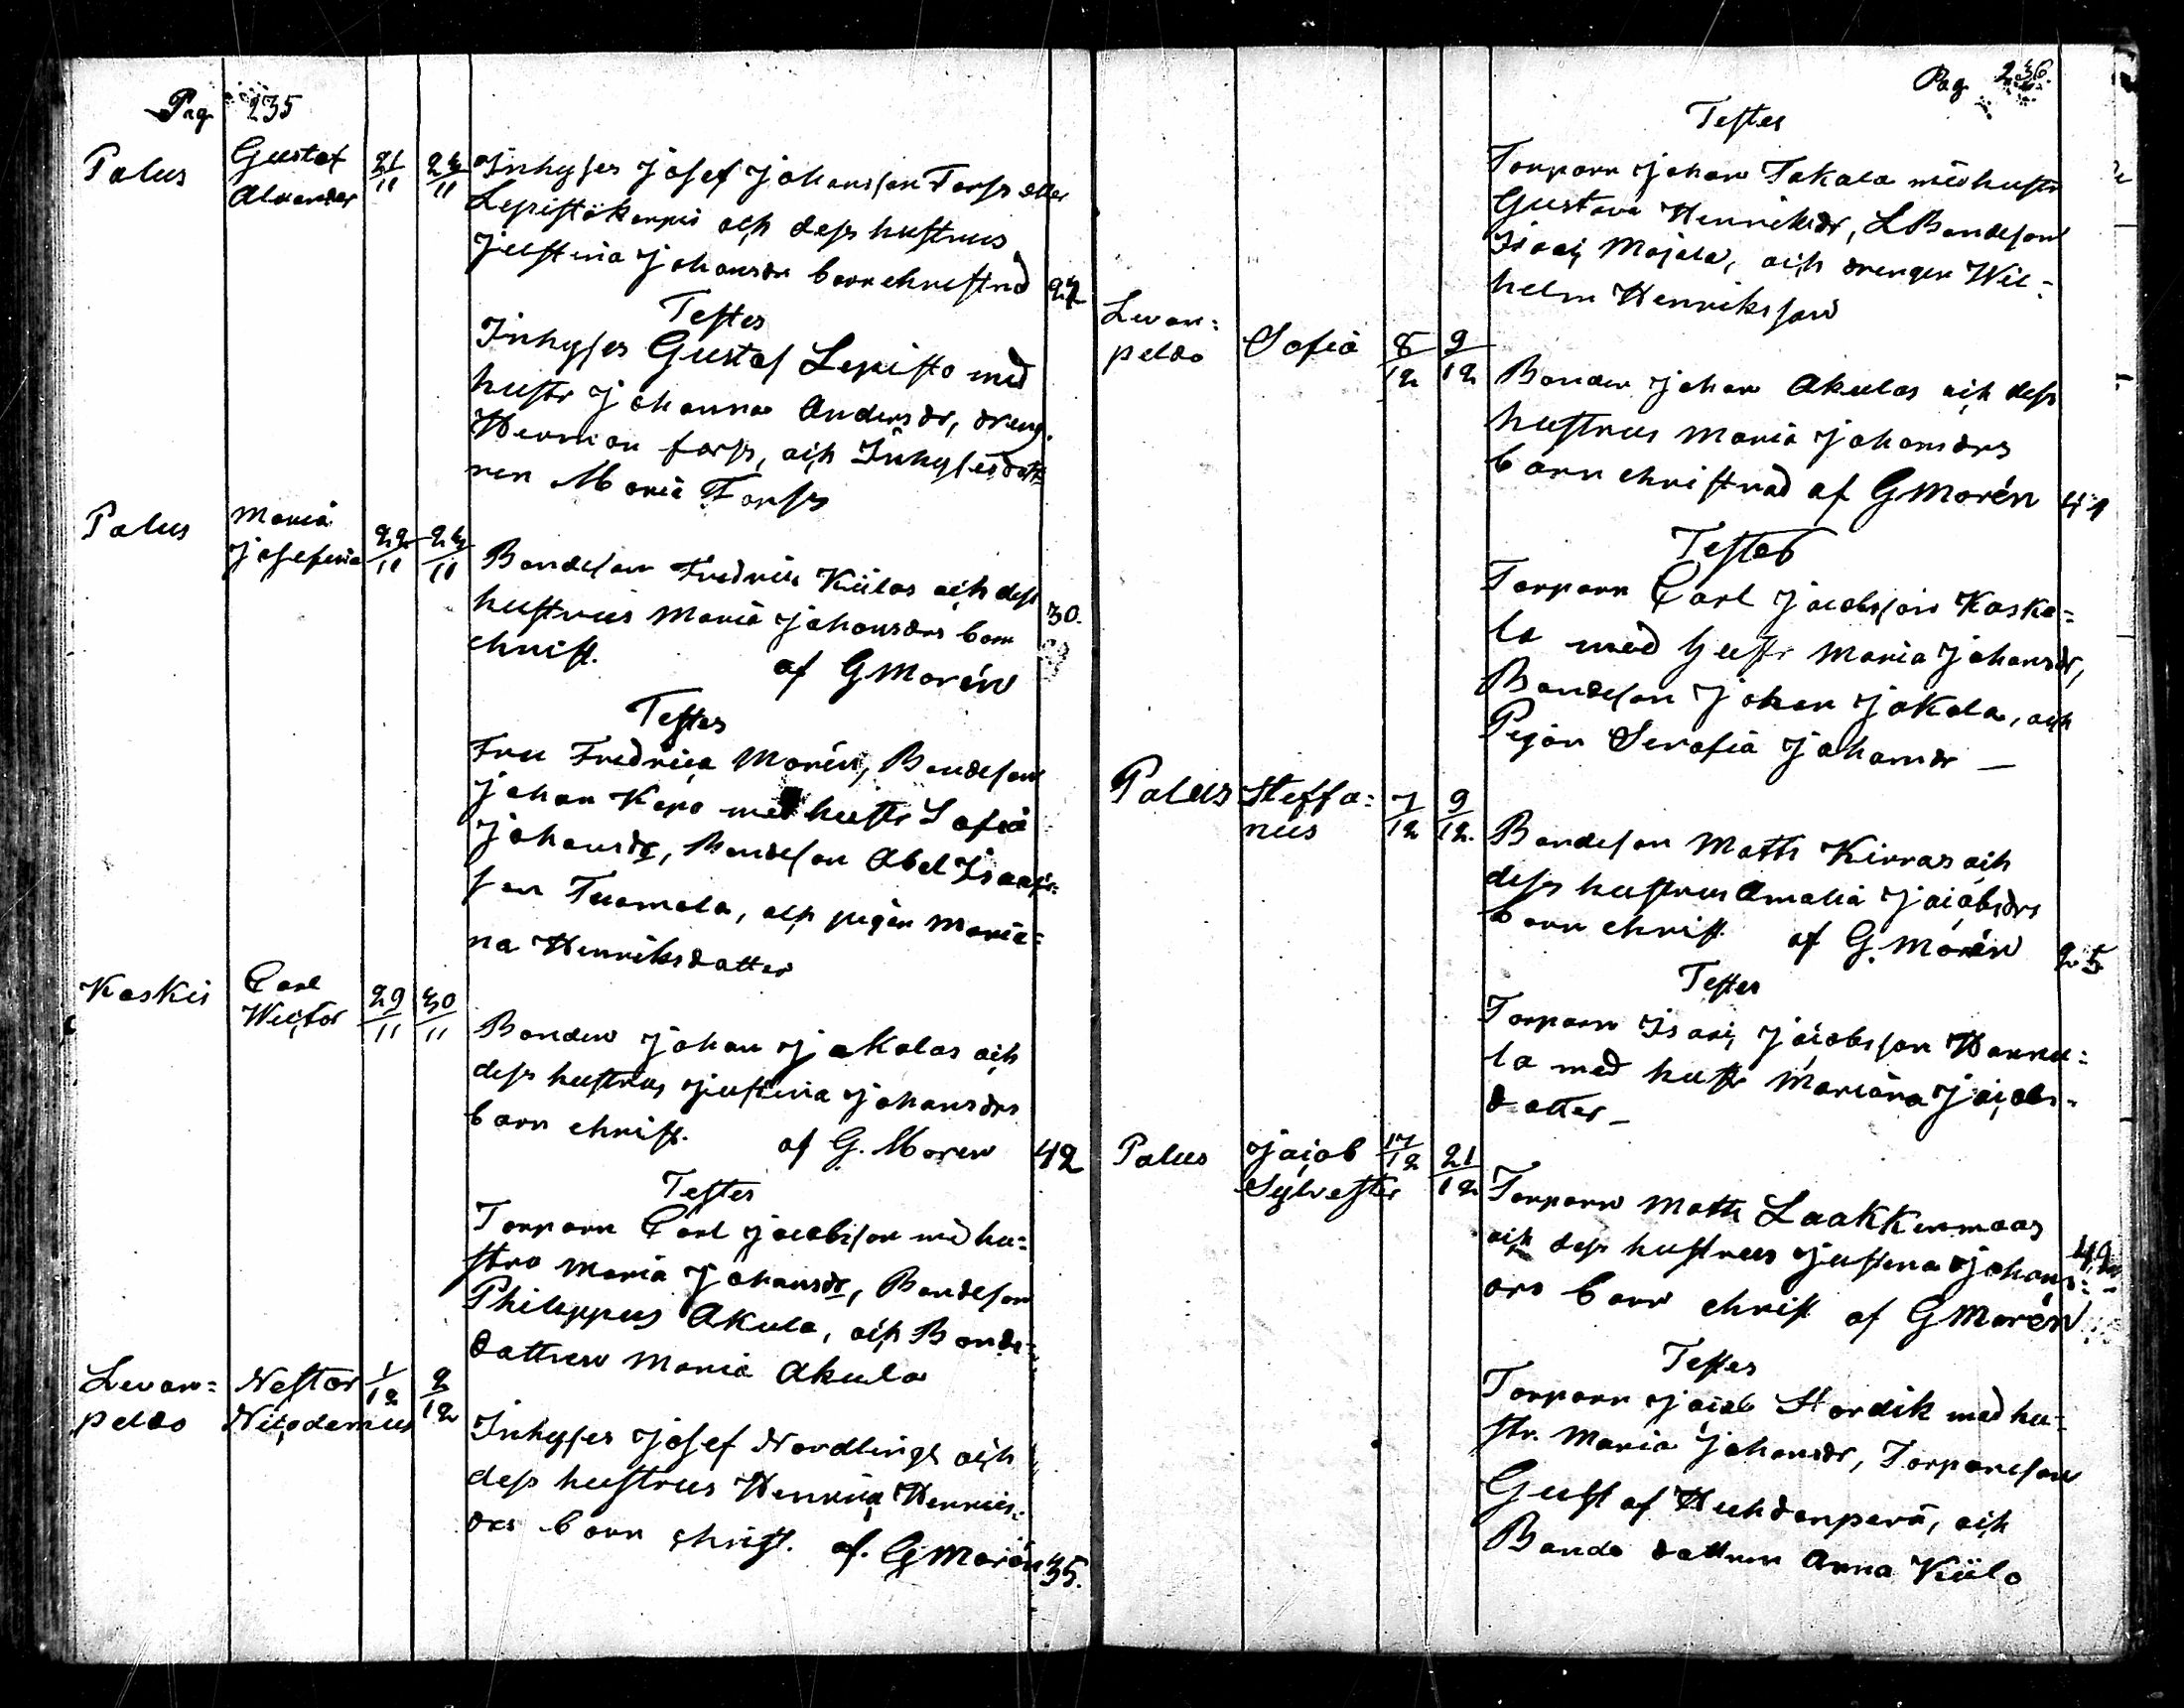 Pag 235
Palus
Gustaf
Alexander
21/11
23/11
Inhyses Josef Johansson Forss eller
Lepistökorpis och dess hustrus
Justina Johansdr barn christnad
27
Testes
Inhyses Gustaf Lepisto med
hustr Johanna Andersdr, dreng.
Herman forss, och Inhysesdott=
ren Maria Forss
Palus
Maria
Josefina
22/11
23/11
Bondeson Fredric Kiilas och dess
hustrus Maria Johansdrs barn
30.
christ. af G Morén
Testes
Fru Fredrica Morén, Bondeson
Johan Kopo med hustr Sofia
Johansdr, Bondeson Abel Isaaks=
son Tuomola, och pigan Maria=
na Henriksdatter
Kaskis
Carl
Wictor
29/11
30/11
Bonden Johan Jakalas och
dess hustrus Justina Johansdrs
barn christ. af G. Moren
42
Testes
Torparn Carl Jacobsson med hu=
stro Maria Johansdr, Bondeson
Philippus Akula, och Bonde=
dattren Maria Akula
Levan=
peldo
Nestor
Nicodemus
1/12
2/12
Inhyses Josef Nordlings och
dess hustrus Henrica Henrics=
drs barn christ. af. G Morén
35.
Pag 236.
Testes
Torparn Johan Takala med hustr
Gustava Henriksdr, L Bondeson
Isaac Majala, och drengen Wil=
helm Henriksson
Levan=
peldo
Sofia
8/12
9/12
Bonden Johan Akulas och dess
hustrus Maria Johansdrs
barn christnad af G Morén
41
Testes
Torparn Carl Jacobsson Koske=
la med hustr Maria Johansdr,
Bondeson Johan Jakala, och
Pigan Serafia Johansdr —
Palus
Steffa=
nus
7/12
9/12.
Bondeson Matts Kirras och
dess hustrus Amalia Jacobsdrs
barn christ. af G. Morén
25
Testes
Torparn Isac Jacobsson Hannu=
la med hustr Mariana Jacobs=
datter —
Palus
Jacob
Sylvester
17/12
21/12
Torparn Matts Laakkenmaas
och dess hustrus Justina Johans=
drs barn christ af G Morén
Testes
Torparn Jacob Stordik med hu=
str. Maria Johansdr, Torpareson
Gustaf Huhdanperä, och
Bonde dattren Anna Kiilo